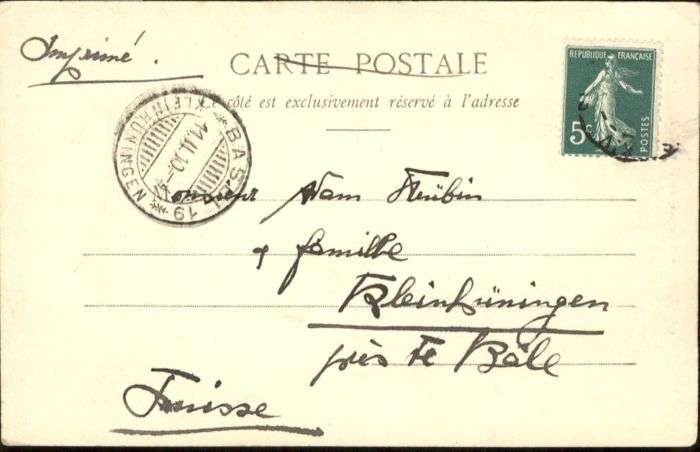 Imprimé.
CARTE POSTALE
côté est exclusivement réservé à l'adresse
REPUBLIQUE FRANÇAISE
5c
POSTES
BASEL 19
KLEINHÜNINGEN
Monsieur Adam Stübin
& famille
Kleinhüningen
près de Bâle
Suisse